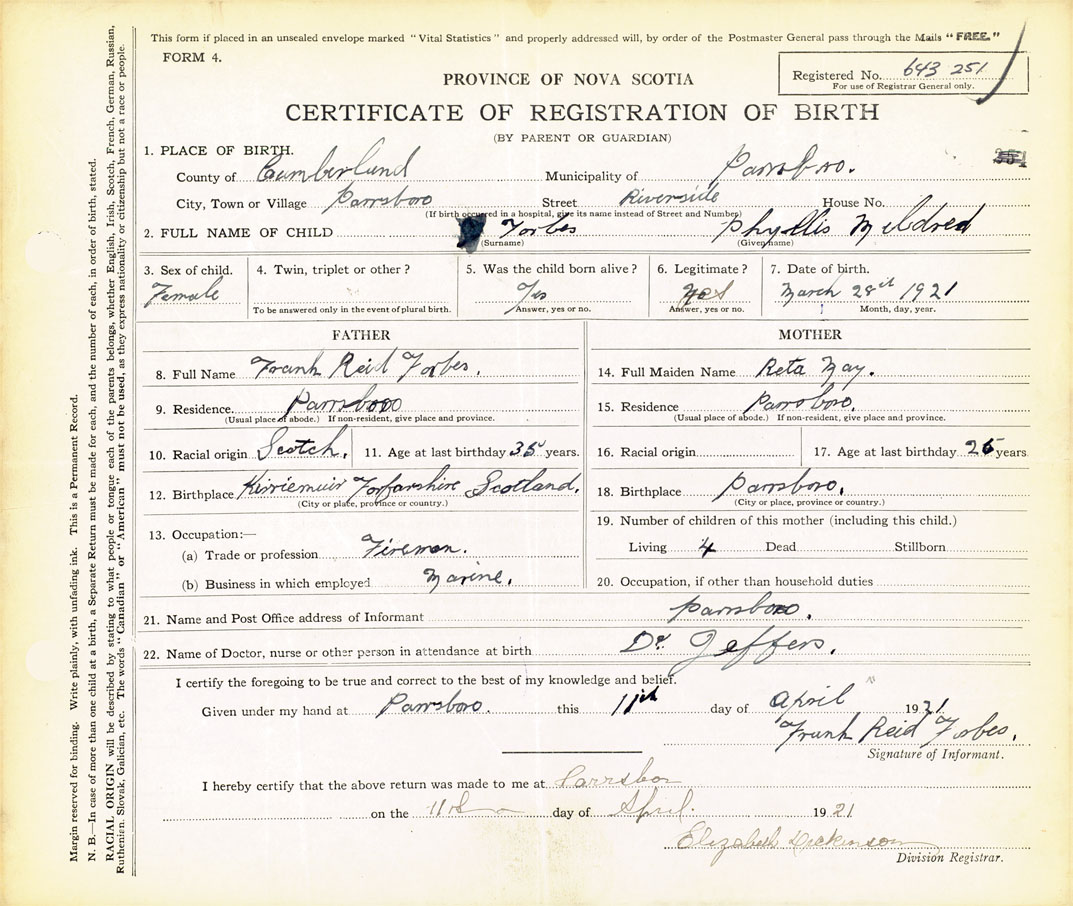 This form if placed in an unsealed envelope marked "Vital Statistics" and properly addressed will, by order of the Postmaster General pass through the Mails "FREE."
FORM 4.
PROVINCE OF NOVA SCOTIA
Registered No. 643 251
For use of Registrar General only.
CERTIFICATE OF REGISTRATION OF BIRTH
(BY PARENT OR GUARDIAN)
1. PLACE OF BIRTH.
County of Cumberland Municipality of Parrsboro.
City, Town or Village Parrsboro Street Riverside House No.
(If birth occurred in a hospital, give its name instead of Street and Number)
2. FULL NAME OF CHILD Forbes Phyllis Mildred
(Surname) (Given name)
3. Sex of child. 4. Twin, triplet or other? 5. Was the child born alive? 6. Legitimate? 7. Date of birth.
Female Yes Yes March 28th 1921
To be answered only in the event of plural birth. Answer, yes or no. Answer, yes or no. Month, day, year.
FATHER
8. Full Name Frank Reid Forbes.
9. Residence. Parrsboro
(Usual place of abode.) If non-resident, give place and province.
10. Racial origin Scotch. 11. Age at last birthday 35 years.
12. Birthplace Kirriemuir Forfarshire Scotland.
(City or place, province or country.)
13. Occupation:—
(a) Trade or profession Fireman.
(b) Business in which employed Marine.
MOTHER
14. Full Maiden Name Reta May.
15. Residence Parrsboro.
(Usual place of abode.) If non-resident, give place and province.
16. Racial origin 17. Age at last birthday 25 years
18. Birthplace Parrsboro.
(City or place, province or country.)
19. Number of children of this mother (including this child.)
Living 4 Dead Stillborn
20. Occupation, if other than household duties
21. Name and Post Office address of Informant Parrsboro.
22. Name of Doctor, nurse or other person in attendance at birth Dr. Jeffers.
I certify the foregoing to be true and correct to the best of my knowledge and belief.
Given under my hand at Parrsboro. this 11th day of April 1921.
Frank Reid Forbes.
Signature of Informant.
I hereby certify that the above return was made to me at Parrsboro
on the 11th day of April 1921
Elizabeth Dickinson
Division Registrar.
Margin reserved for binding. Write plainly, with unfading ink. This is a Permanent Record.
N. B.—In case of more than one child at a birth, a Separate Return must be made for each, and the number of each, in order of birth, stated.
RACIAL ORIGIN will be described by stating to what people or tongue each of the parents belongs, whether English, Irish, Scotch, French, German, Russian,
Ruthenian, Slovak, Galician, etc. The words "Canadian" or "American" must not be used, as they express nationality or citizenship but not a race or people.